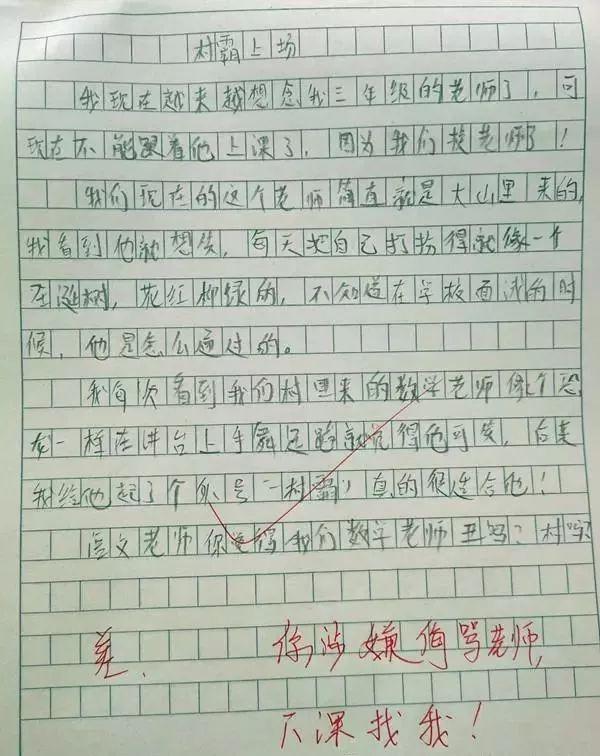 村霸上场
我现在越来越想念我三年级的老师了，可
现在不能跟着他上课了，因为我们换老师了！
我们现在的这个老师简直就是大山里来的，
我看到他就想笑，每天把自己打扮得就像一个
圣诞树，花红柳绿的，不知道在学校面试的时
候，他是怎么通过的。
我每次看到我们村里来的数学老师像个恐
龙一样在讲台上手舞足蹈就觉得他可笑，后来
我给他起了个外号“村霸”真的很适合他！
语文老师你觉得我们数学老师丑吗？村吗？
差.
你涉嫌侮骂老师，
下课找我！